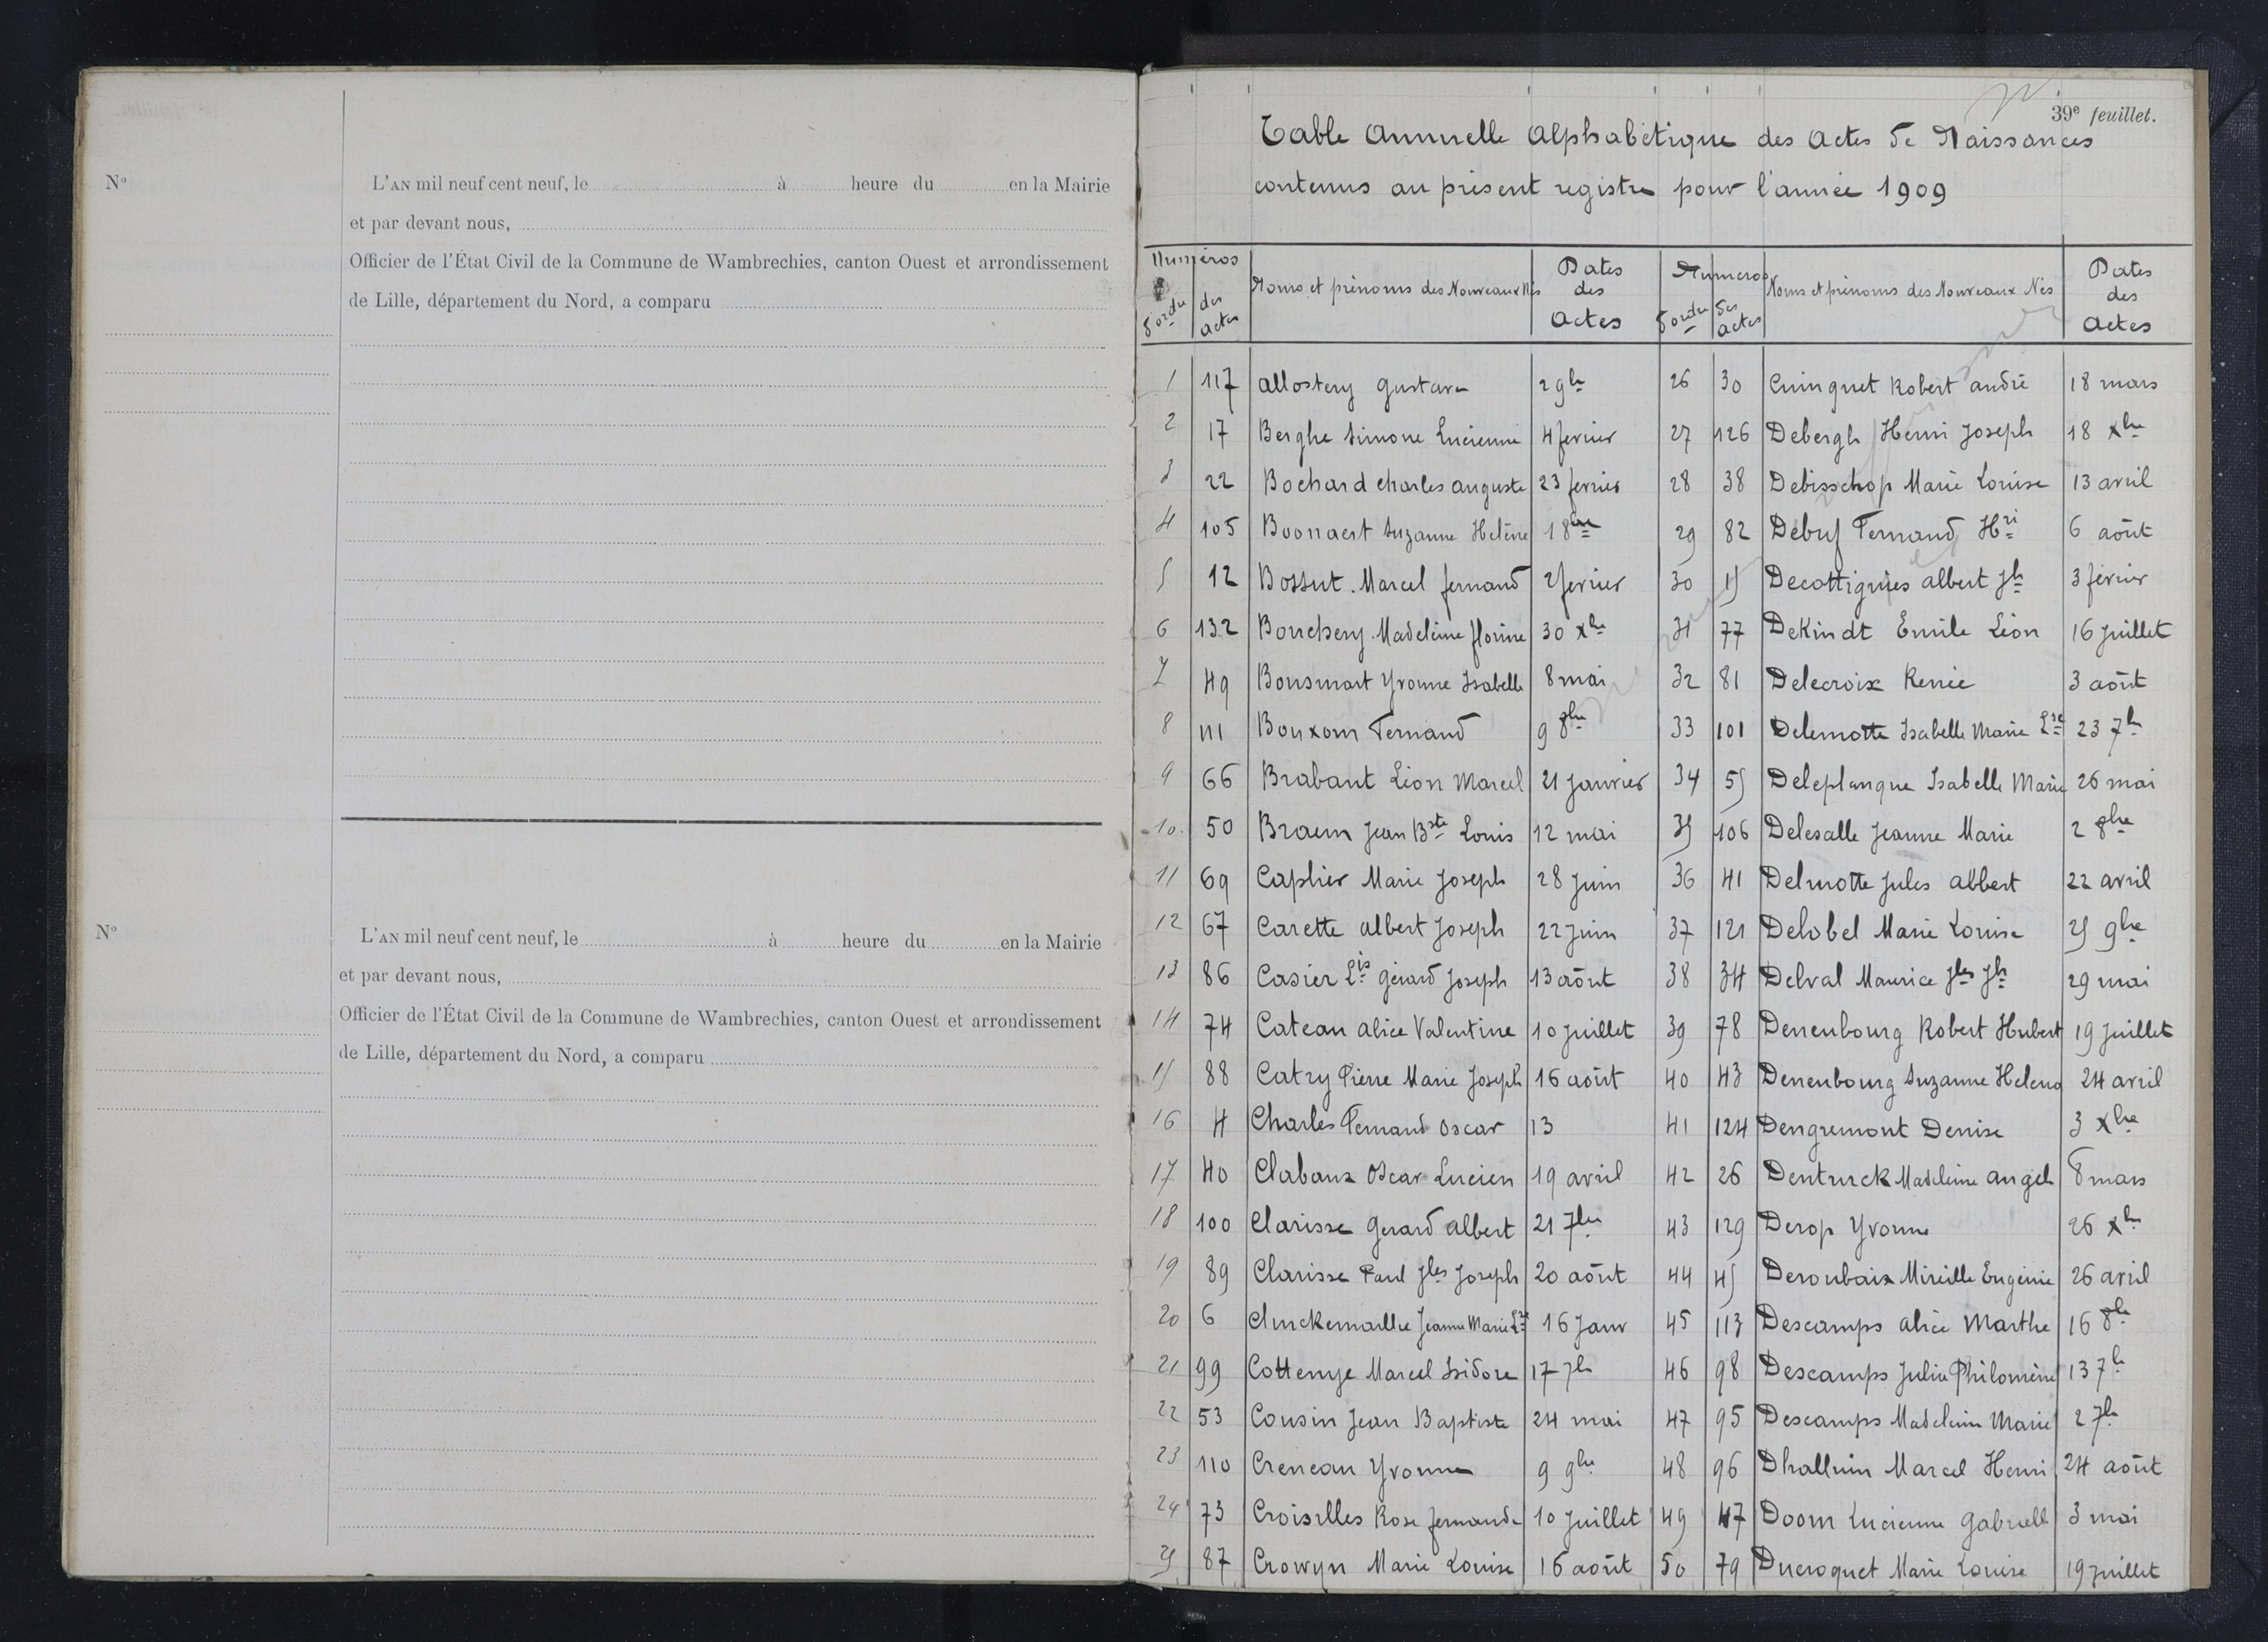 N°
L'AN mil neuf cent neuf, le à heure du en la Mairie
et par devant nous,
Officier de l'État Civil de la Commune de Wambrechies, canton Ouest et arrondissement
de Lille, département du Nord, a comparu
N°
L'AN mil neuf cent neuf, le à heure du en la Mairie
et par devant nous,
Officier de l'État Civil de la Commune de Wambrechies, canton Ouest et arrondissement
de Lille, département du Nord, a comparu
39e feuillet.
Table Annuelle Alphabétique des Actes de Naissances
contenus au présent registre pour l'année 1909
Numéros d'ordre des actes Noms et prénoms des Nouveaux Nés Dates des Actes
1 117 Allostery Gustave 2 9bre
2 17 Berghe Simone Lucienne 4 fevrier
3 22 Bochard Charles Auguste 23 fevrier
4 105 Boonaert Suzanne Helène 1 8bre
5 12 Bossut Marcel Fernand 2 fevrier
6 132 Bouchery Madeleine Florine 30 Xbre
7 49 Bousmart Yvonne Isabelle 8 mai
8 111 Bouxom Fernand 9 8bre
9 66 Brabant Léon Marcel 21 janvier
10 50 Braem Jean Bste Louis 12 mai
11 69 Caplier Marie Joseph 28 juin
12 67 Carette Albert Joseph 22 juin
13 86 Casier Lis Gérard Joseph 13 août
14 74 Cateau Alice Valentine 10 juillet
15 88 Catry Pierre Marie Joseph 16 août
16 4 Charles Fernand Oscar 13
17 40 Clabaux Oscar Lucien 19 avril
18 100 Clarisse Gerard Albert 21 7bre
19 89 Clarisse Paul Jles Joseph 20 août
20 6 Clinckemaillie Jeanne Marie Lse 16 Janv
21 99 Cottenye Marcel Isidore 17 7bre
22 53 Cousin Jean Baptiste 24 mai
23 110 Creneau Yvonne 9 9bre
24 73 Croisilles Rose Fernande 10 juillet
25 87 Crowyn Marie Louise 16 août
Numeros d'ordre des actes Noms et prénoms des Nouveaux Nés Dates des Actes
26 30 Cuinguet Robert André 18 mars
27 126 Debergh Henri Joseph 18 Xbre
28 38 Debisschop Marie Louise 13 avril
29 82 Debuf Fernand Hri 6 août
30 15 Decottignies Albert Jh 3 février
31 77 DeKindt Emile Léon 16 juillet
32 81 Delecroix Renée 3 août
33 101 Delemotte Isabelle Marie Lse 23 7bre
34 55 Deleplanque Isabelle Marie 26 mai
35 106 Delesalle Jeanne Marie 2 8bre
36 41 Delmotte Jules Albert 22 avril
37 121 Delobel Marie Louise 25 9bre
38 34 Delval Maurice Jles Jh 29 mai
39 78 Denenbourg Robert Hubert 19 juillet
40 43 Denenbourg Suzanne Helena 24 avril
41 124 Dengremont Denise 3 Xbre
42 26 Denturck Madeleine Angèle 8 mars
43 129 Derop Yvonne 26 Xbre
44 45 Deroubaix Mireille Eugénie 26 avril
45 113 Descamps Alice Marthe 16 8bre
46 98 Descamps Julie Philomène 13 7bre
47 95 Descamps Madeleine Marie 2 7bre
48 96 Dhalluin Marcel Henri 24 août
49 47 Doom Lucienne Gabrielle 3 mai
50 79 Ducroquet Marie Louise 19 juillet